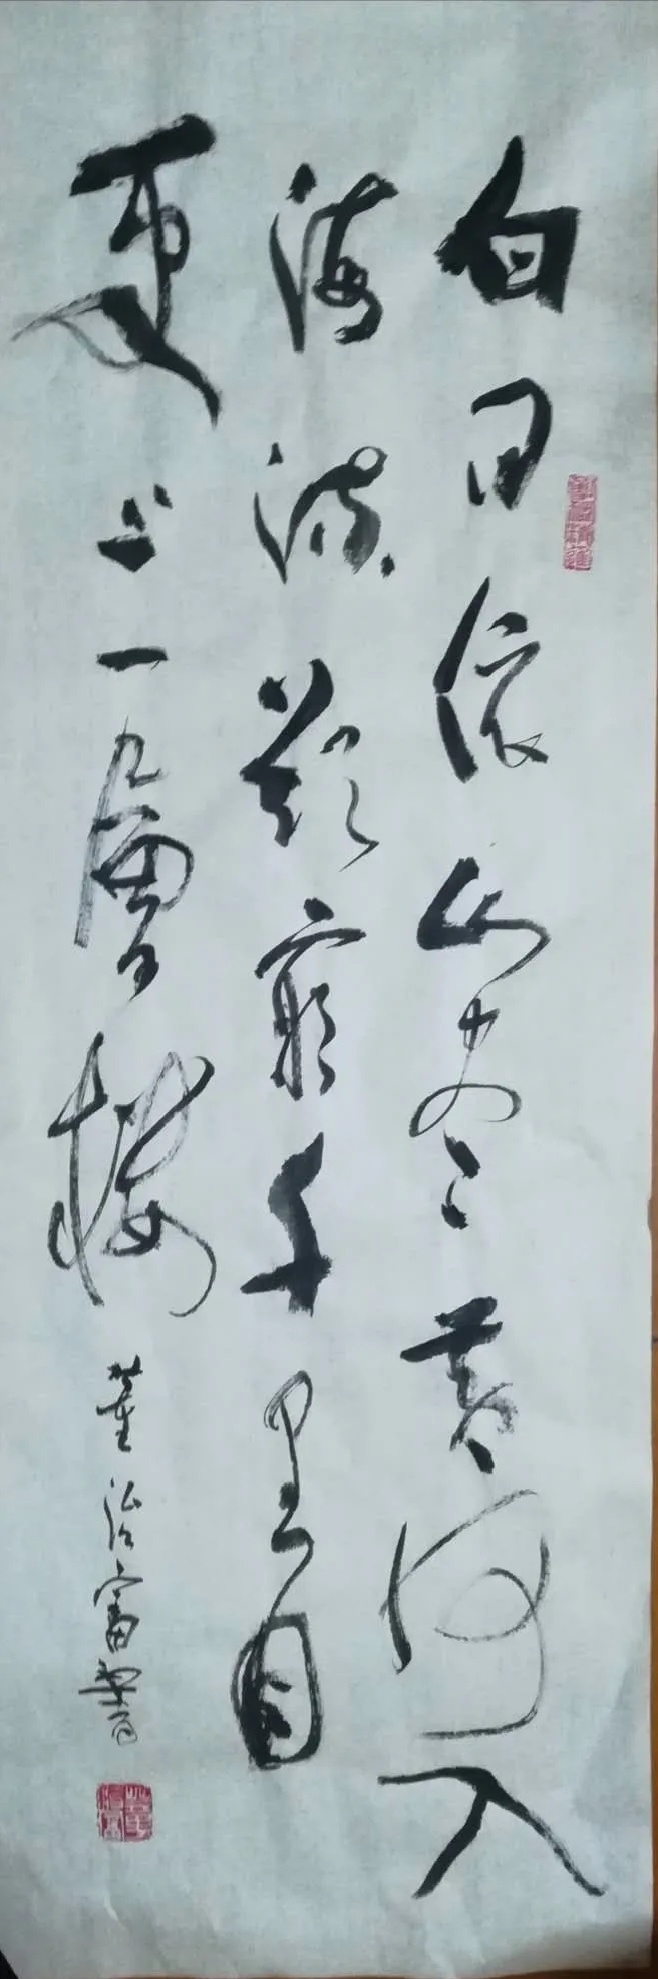 白日依山尽黄河入
海流欲穷千里目
更上一层楼
董治富书